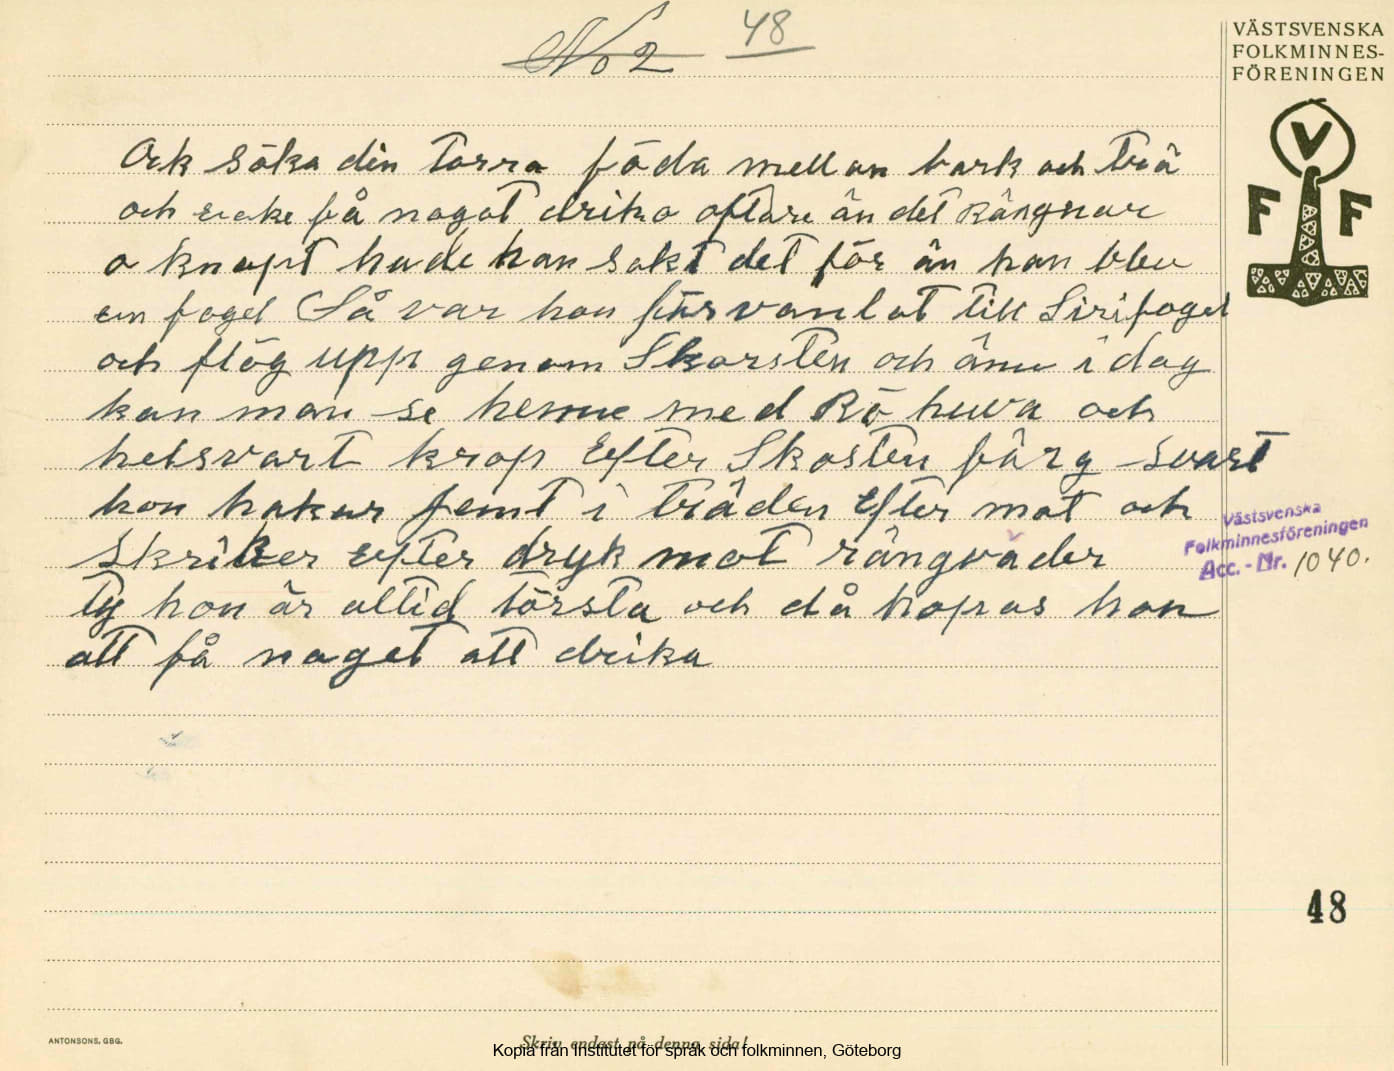 No 2 48
VÄSTSVENSKA
FOLKMINNES-
FÖRENINGEN
V
F F
Ock söka din torra föda mellan bark och trä
och icke få nagot drika oftare än det Rängnar
o knapt hade han sakt det för än han blev
en fogel Så var hon försvanlat till Sirifogel
och flög upp genom Skorsten och ännu i dag
kan man se henne med Rö huva och
helsvart krop Efter Skosten färg svart
hon hakar femt i träden Efter mat och
Skriker efter dryk mot rängvader
Ty hon är altid törsta och då hopas hon
att få naget att drika
Västsvenska
Folkminnesföreningen
Acc.-Nr. 1040.
48
ANTONSONS, GBG.
Skriv endast på denna sida!
Kopia från Institutet för språk och folkminnen, Göteborg